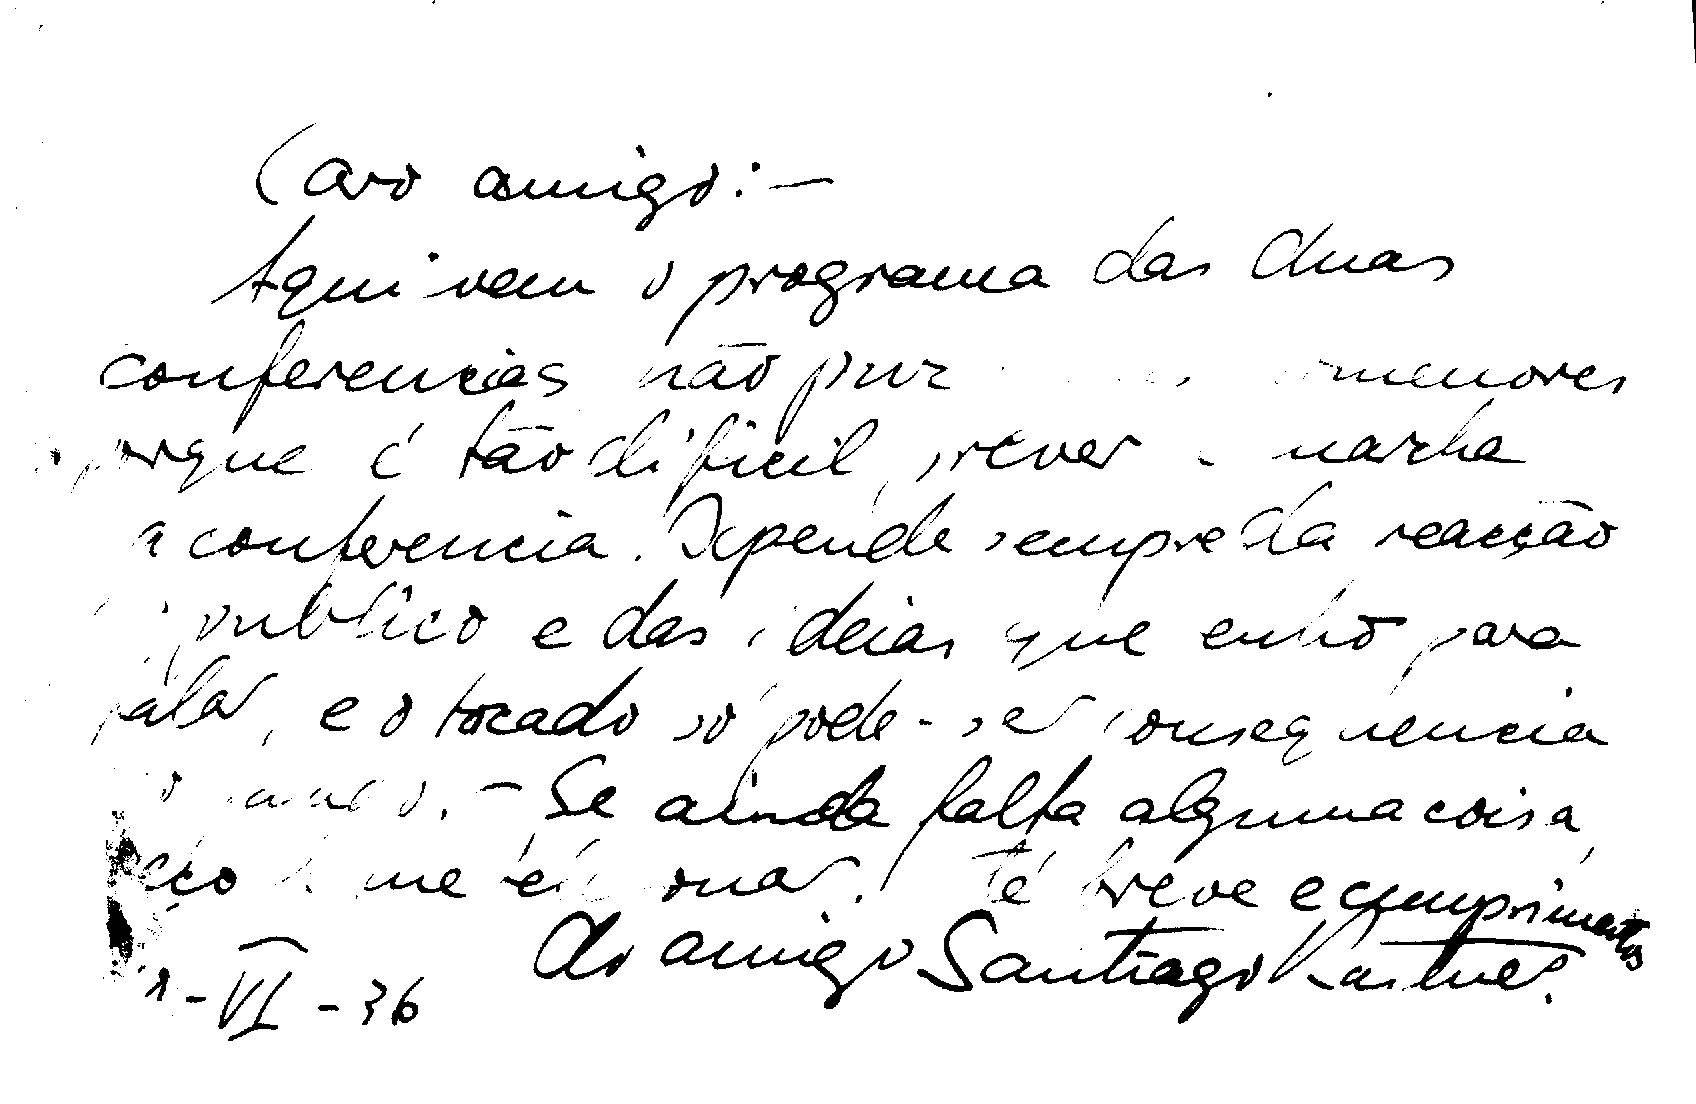 Caro amigo:—
Aqui vem o programa das duas
conferencias não por menores
porque é tão dificil prever a marcha
a conferencia. Depende sempre da reacção
publico e das ideias que então para
falar, e o tocado só pode-ser consequencia
Se ainda falta alguma coisa,
peço me telefonar. Té breve e cumprimentos
do amigo Santiago Kastner.
1-VI-36